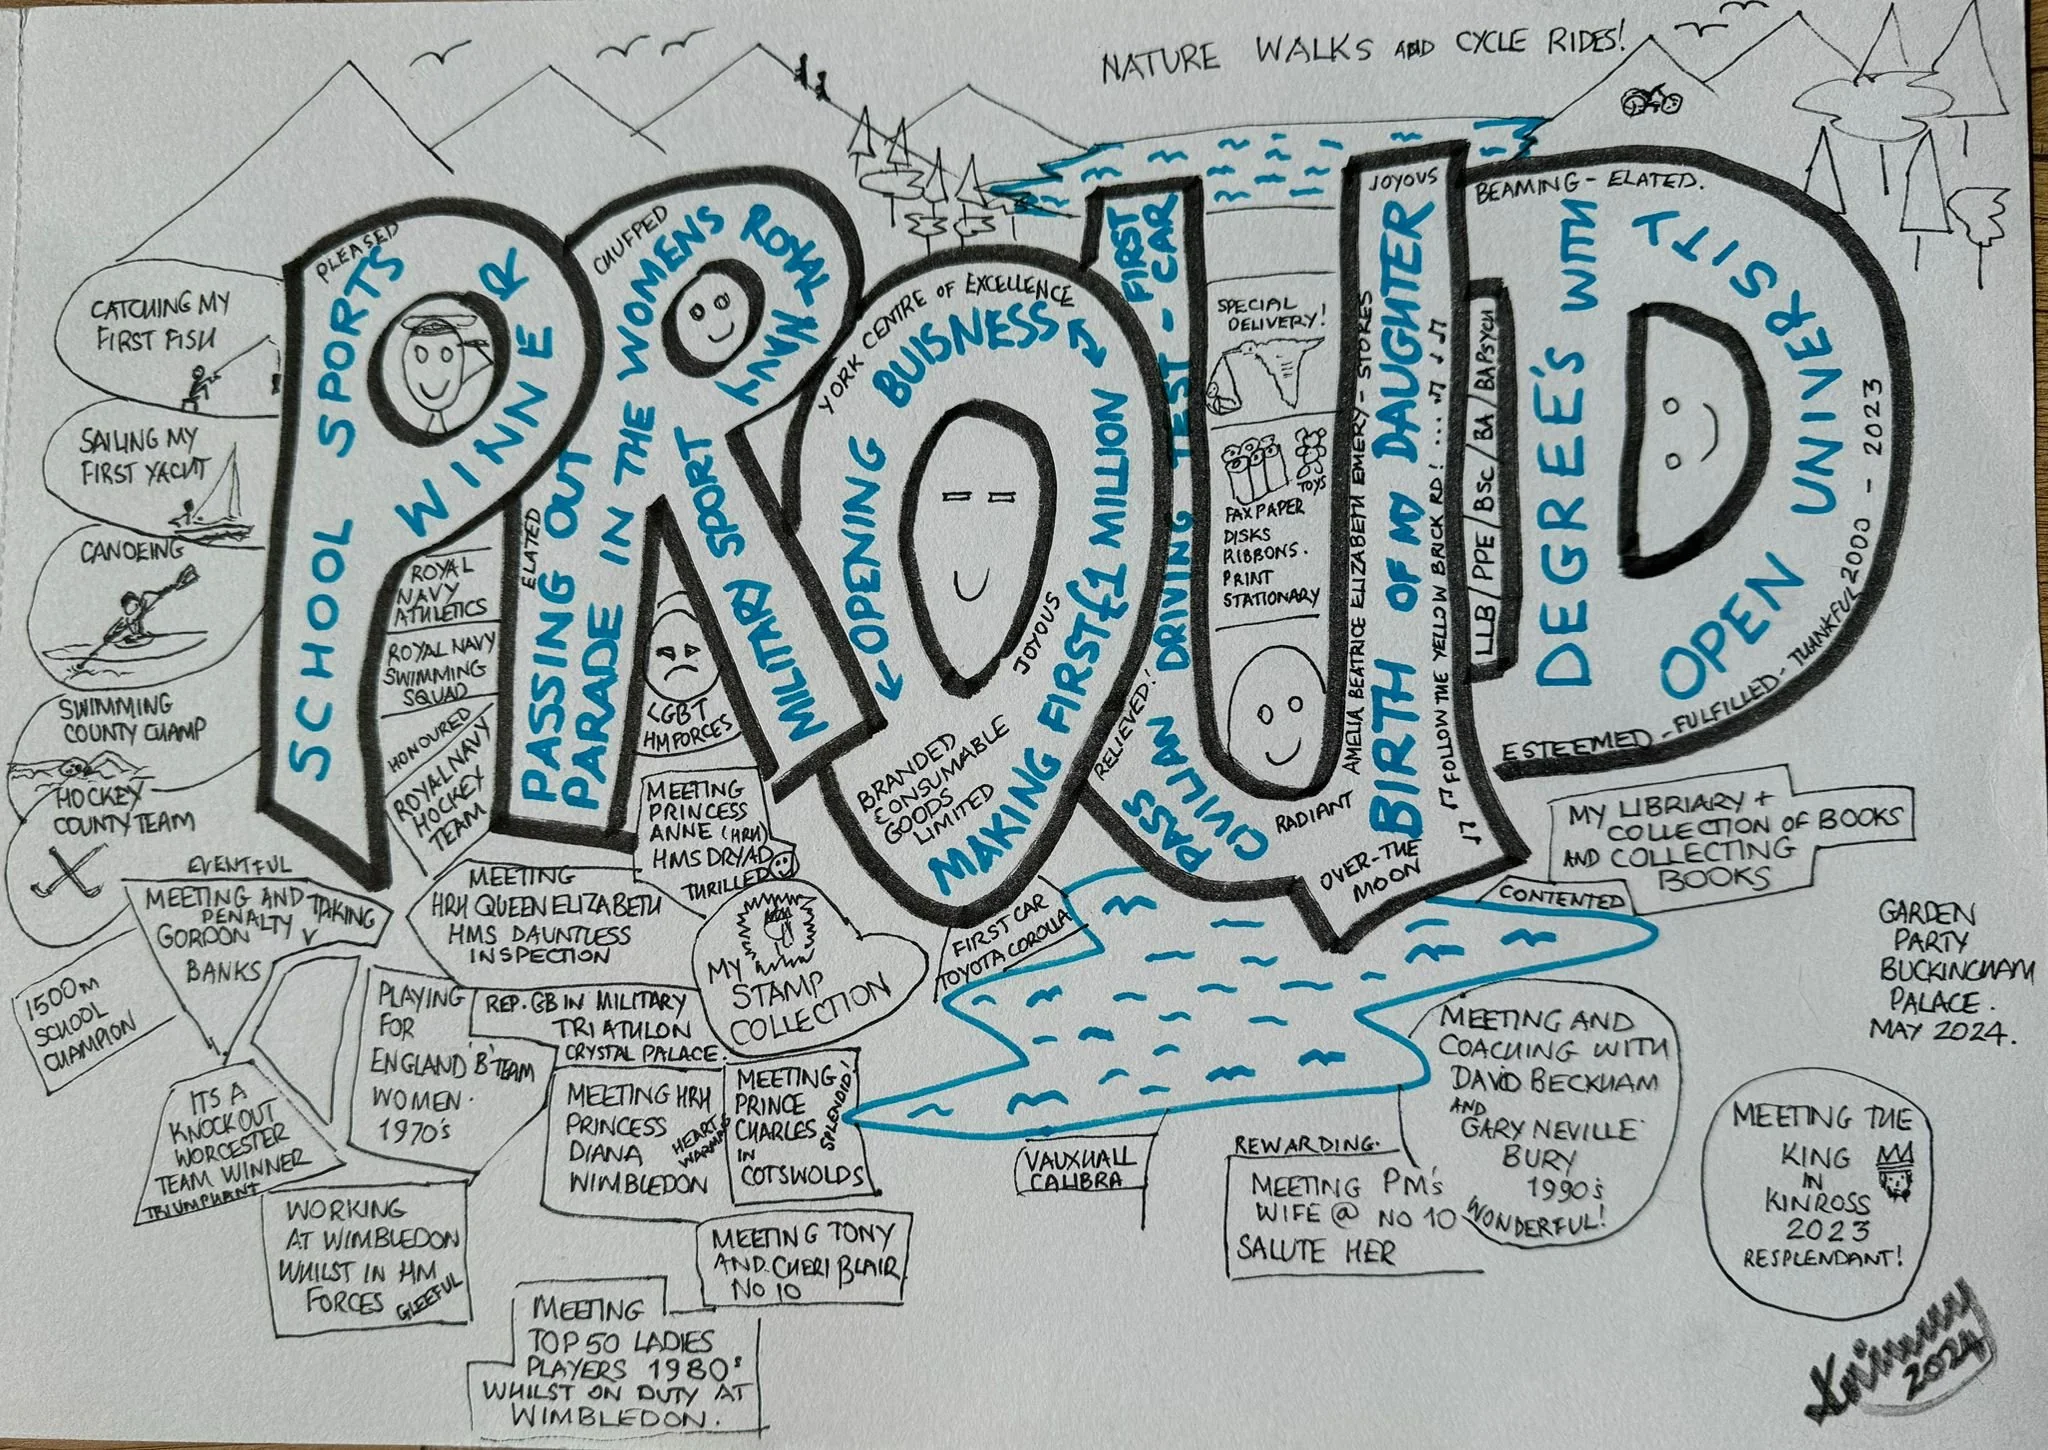 NATURE WALKS AND CYCLE RIDES!
PROUD
PLEASED
SCHOOL SPORTS
WINNER
CHUFFED
ELATED
PASSING OUT
PARADE IN THE WOMENS
ROYAL NAVY
MILITARY SPORT
YORK CENTRE OF EXCELLENCE
OPENING BUISNESS
MAKING FIRST £1 MILLION
JOYOUS
BRANDED
CONSUMABLE
GOODS
LIMITED
RELIEVED!
PASS
CIVILIAN DRIVING TEST - FIRST
CAR
SPECIAL
DELIVERY!
TOYS
FAX PAPER
DISKS
RIBBONS.
PRINT
STATIONARY
RADIANT
JOYOUS
AMELIA BEATRICE ELIZABETH EMERY - STORES
BIRTH OF MY DAUGHTER
FOLLOW THE YELLOW BRICK RD!....
OVER-THE
MOON
LLB/PPE/BSc/BA/BAPsych
BEAMING - ELATED.
DEGREE'S WITH
OPEN UNIVERSITY
2000 - 2023
ESTEEMED - FULFILLED - THANKFUL
CATCHING MY
FIRST FISH
SAILING MY
FIRST YACHT
CANOEING
SWIMMING
COUNTY CHAMP
HOCKEY
COUNTY TEAM
1500m
SCHOOL
CHAMPION
ROYAL
NAVY
ATHLETICS
ROYAL NAVY
SWIMMING
SQUAD
HONOURED
ROYAL NAVY
HOCKEY
TEAM
LGBT
HM FORCES
MEETING
PRINCESS
ANNE (HRH)
HMS DRYAD
THRILLED
EVENTFUL
MEETING AND TAKING
PENALTY V
GORDON
BANKS
MEETING
HRH QUEEN ELIZABETH
HMS DAUNTLESS
INSPECTION
MY
STAMP
COLLECTION
FIRST CAR
TOYOTA COROLLA
PLAYING
FOR
ENGLAND 'B' TEAM
WOMEN.
1970's
REP. GB IN MILITARY
TRIATHLON
CRYSTAL PALACE.
ITS A
KNOCKOUT
WORCESTER
TEAM WINNER
TRIUMPHANT
MEETING HRH
PRINCESS
DIANA
WIMBLEDON
HEART
WARMING
MEETING
PRINCE
CHARLES
IN
COTSWOLDS
SPLENDID!
WORKING
AT WIMBLEDON
WHILST IN HM
FORCES
GLEEFUL
MEETING TONY
AND CHERI BLAIR
NO 10
MEETING
TOP 50 LADIES
PLAYERS 1980's
WHILST ON DUTY AT
WIMBLEDON.
VAUXHALL
CALIBRA
REWARDING.
MEETING PM's
WIFE @ NO 10
SALUTE HER
MEETING AND
COACHING WITH
DAVID BECKHAM
AND
GARY NEVILLE
BURY
1990's
WONDERFUL!
MY LIBRIARY +
COLLECTION OF BOOKS
AND COLLECTING
BOOKS
CONTENTED
GARDEN
PARTY
BUCKINGHAM
PALACE.
MAY 2024.
MEETING THE
KING
IN
KINROSS
2023
RESPLENDANT!
2024